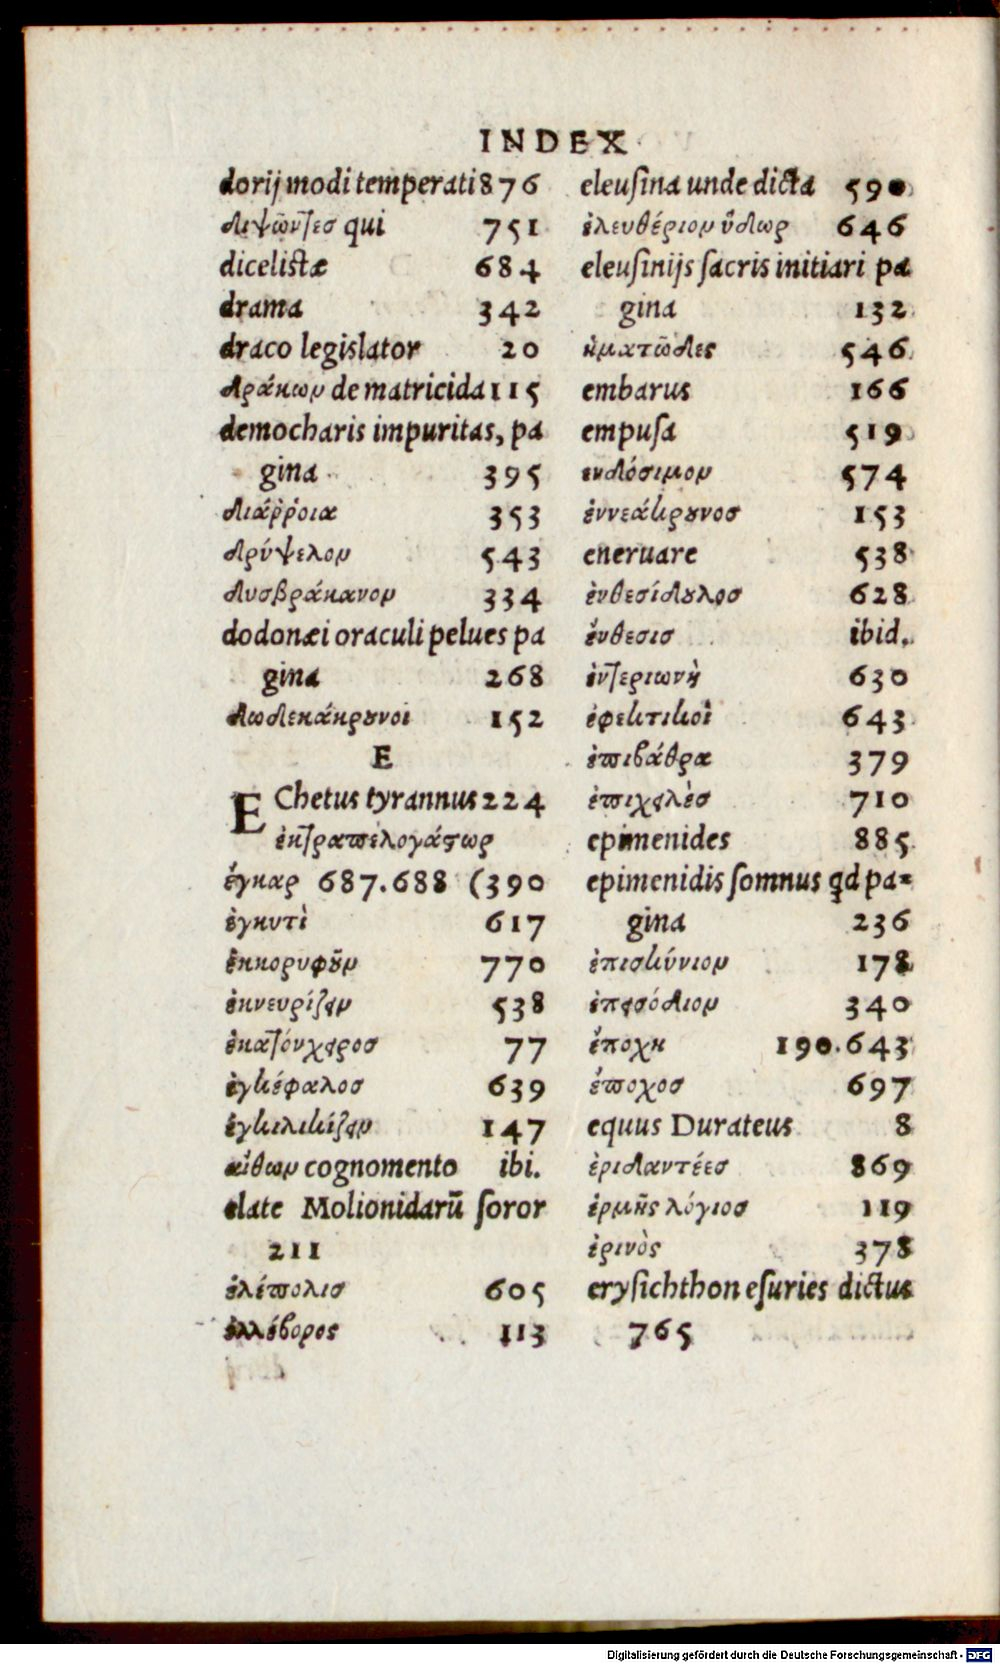 INDEX
dorij modi temperati 876
διψῶντες qui 751
dicelistæ 684
drama 342
draco legislator 20
δράκων de matricida 115
democharis impuritas, pa
gina 395
διάῤῥοια 353
δρύψελον 543
δυσβράκανον 334
dodonæi oraculi pelues pa
gina 268
δωδεκάκρουνοι 152
E
EChetus tyrannus 224
ἐκτραπελογάστωρ
ἔγκαρ 687.688 (390
ἐγκυτὶ 617
ἐκκορυφοῦν 770
ἐκνευρίζειν 538
ἑκατόνχειρος 77
ἐγκέφαλος 639
ἐγκιλικίζειν 147
αἴθων cognomento ibi.
elate Molionidarū ſoror
211
ἐλέπολις 605
ἐλλέβορος 113
eleuſina unde dicta 590
ἐλευθέριον ὕδωρ 646
eleuſinijs ſacris initiari pa
gina 132
ἡματῶδες 546
embarus 166
empuſa 519
ενδόσιμον 574
ἐννεάκρουνος 153
eneruare 538
ἐνθεσίδουλος 628
ἔνθεσις ibid.
ἐντεριωνὴ 630
ἐφεκτικοὶ 643
ἐπιβάθρα 379
ἐπιχειλὲς 710
epimenides 885
epimenidis ſomnus qd pa=
gina 236
ἐπισκύνιον 178
ἐπεισόδιον 340
ἔποχη 190.643
ἔποχος 697
equus Durateus 8
ἐριδαντέες 869
ἑρμῆς λόγιος 119
ἐρινὸς 378
eryſichthon eſuries dictus
765
Digitalisierung gefördert durch die Deutsche Forschungsgemeinschaft - DFG